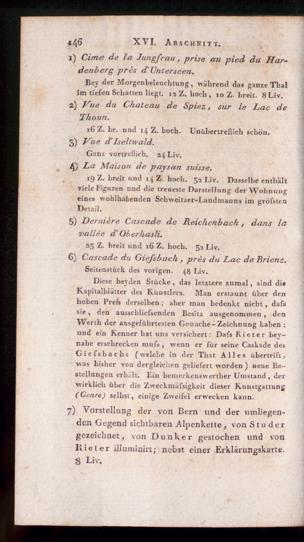 146 XVI. Abschnitt.
1) Cime de la Jungfrau, prise au pied du Har-
denberg près d'Unterseen.
Bey der Morgenbeleuchtung, während das ganze Thal
im tiefen Schatten liegt. 12 Z. hoch, 10 Z. breit. 8 Liv.
2) Vue du Chateau de Spiez, sur le Lac de
Thoun.
16 Z. br. und 14 Z. hoch. Unübertreflich schön.
3) Vue d'Iseltwald.
Ganz vortreflich. 24 Liv.
4) La Maison de paysan suisse.
19 Z. breit und 14 Z. hoch. 52 Liv. Dasselbe enthält
viele Figuren und die treueste Darstellung der Wohnung
eines wohlhabenden Schweitzer-Landmanns im größten
Detail.
5) Dernière Cascade de Reichenbach, dans la
vallée d'Oberhasli.
25 Z. breit und 16 Z. hoch. 52 Liv.
6) Cascade du Giefsbach, près du Lac de Brienz.
Seitenstück des vorigen. 48 Liv.
Diese beyden Stücke, das letztere zumal, sind die
Kapitalblätter des Künstlers. Man erstaunt über den
hohen Preis derselben; aber man bedenkt nicht, daſs
sie, den ausschließenden Besitz ausgenommen, den
Werth der ausgeführtesten Gouache-Zeichnung haben;
und ein Kenner hat uns versichert: Daſs Rieter bey-
nahe erschrecken muſs, wenn er für seine Caskade des
Gieſsbachs (welche in der That Alles übertrift,
was bisher von dergleichen geliefert worden) neue Be-
stellungen erhält. Ein bemerkenswerther Umstand, der
wirklich über die Zweckmäſsigkeit dieser Kunstgattung
(Genre) selbst, einige Zweifel erwecken kann.
7) Vorstellung der von Bern und der umliegen-
den Gegend sichtbaren Alpenkette, von Studer
gezeichnet, von Dunker gestochen und von
Rieter illuminirt; nebst einer Erklärungskarte.
8 Liv.